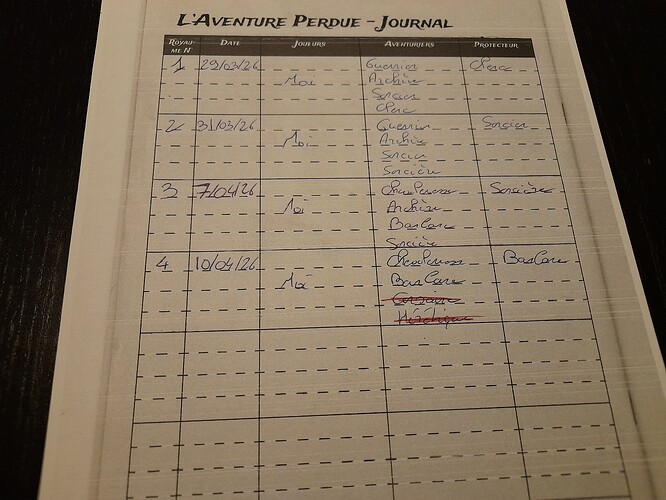 L'AVENTURE PERDUE - JOURNAL
ROYAU-ME N° DATE JOUEURS AVENTURIERS PROTECTEUR
1 29/03/26 Moi Guerrier Clerc
Archère
Sorcier
Clerc
2 31/03/26 Moi Guerrier Sorcier
Archère
Sorcier
Sorcière
3 7/04/26 Moi Sorcière
Archère
Barbare
Sorcière
4 10/04/26 Moi Barbare
Barbare
Hérétique